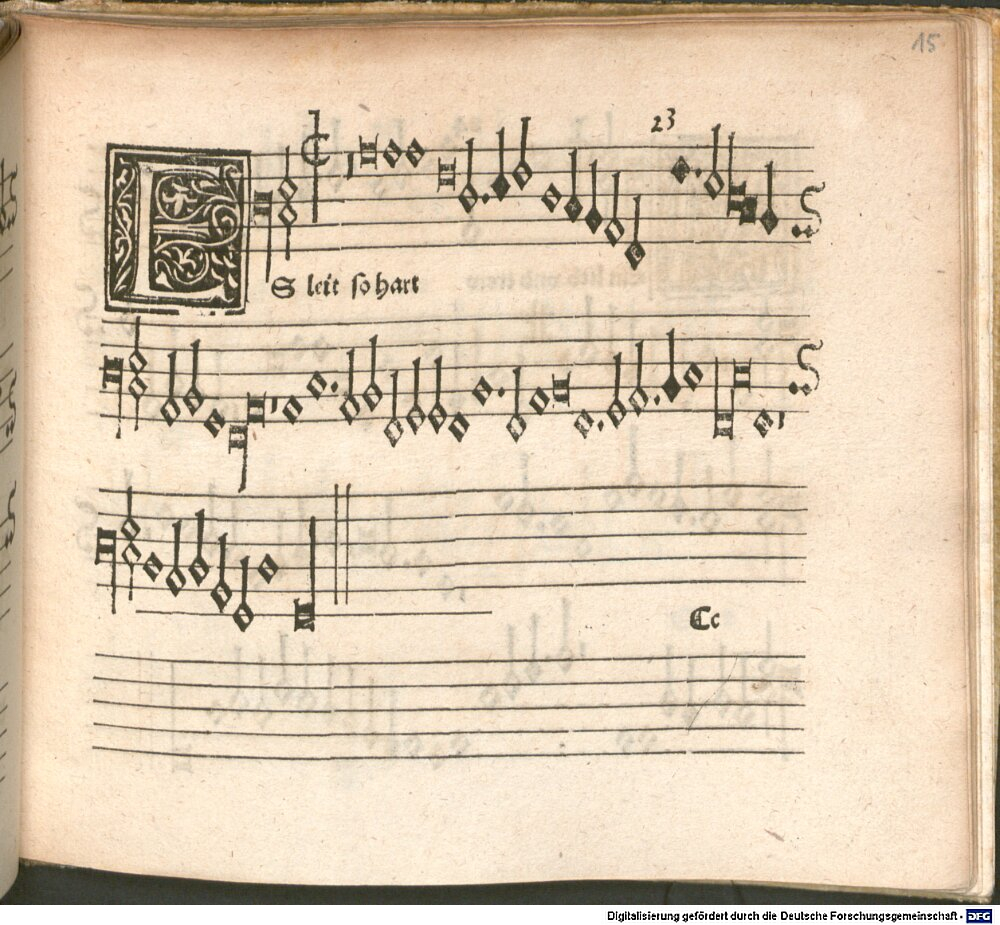 15
23
ES leit so hart
Cc
Digitalisierung gefördert durch die Deutsche Forschungsgemeinschaft - DFG